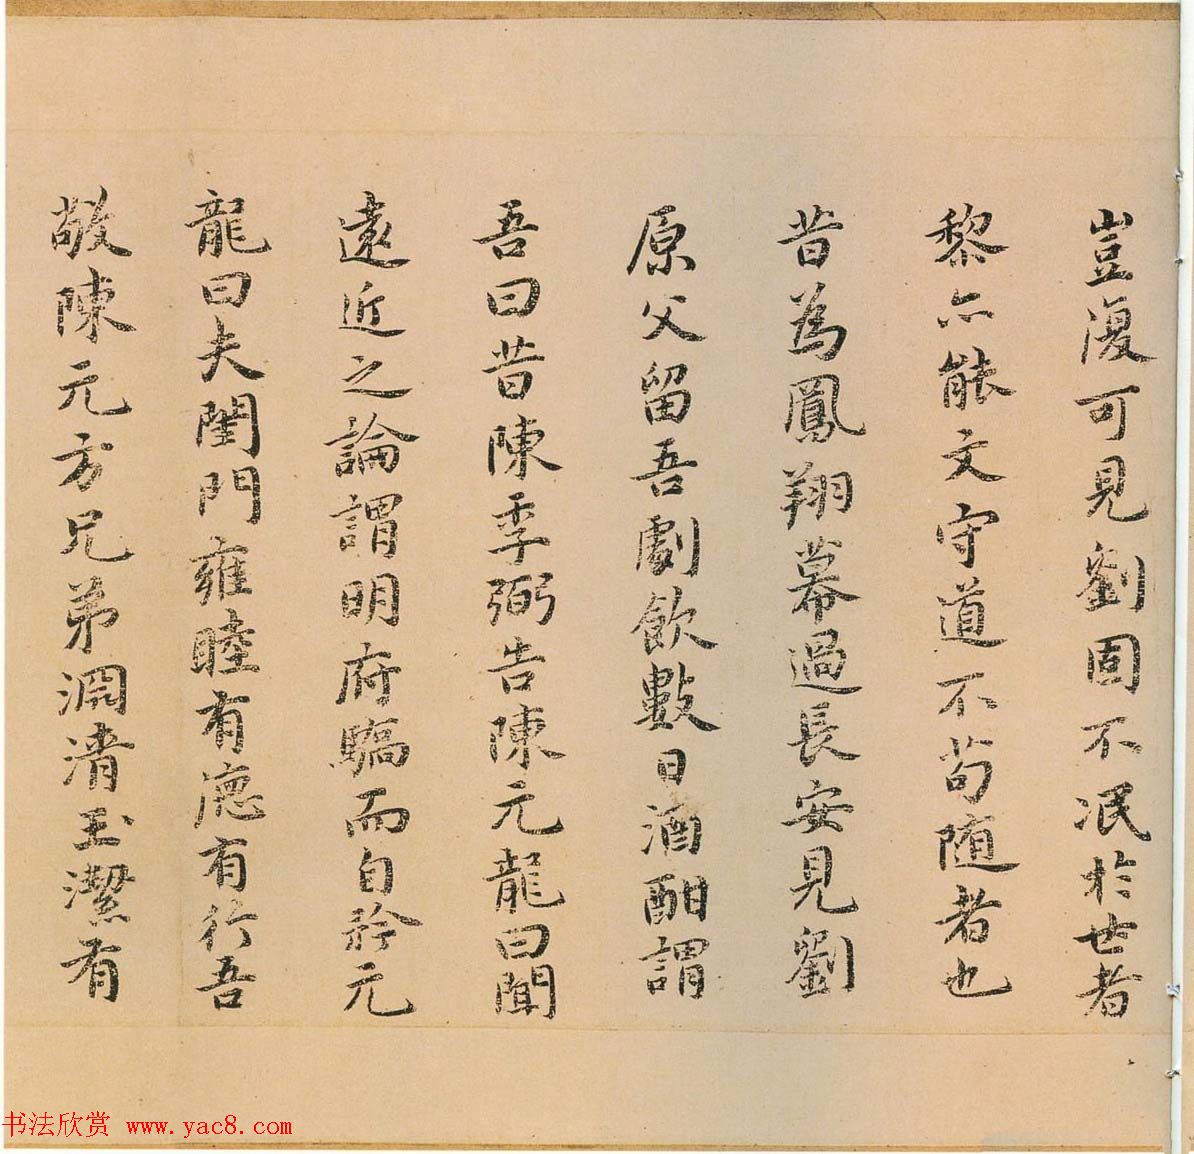 豈復可見劉固不泯於世者
黎亦能文守道不苟隨者也
昔為鳳翔幕過長安見劉
原父留吾劇飲數日酒酣謂
吾曰昔陳季弼告陳元龍曰聞
遠近之論謂明府驕而自矜元
龍曰夫閨門雍睦有德有行吾
敬陳元方兄弟淵清玉潔有
书法欣赏 www.yac8.com